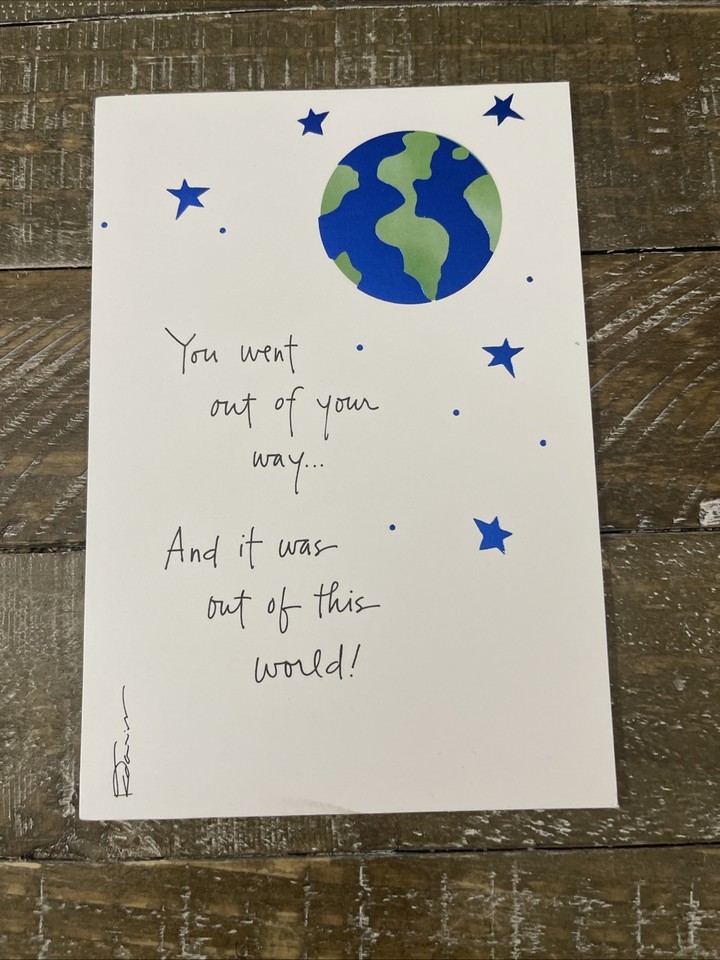 You went
out of your
way...
And it was
out of this
world!